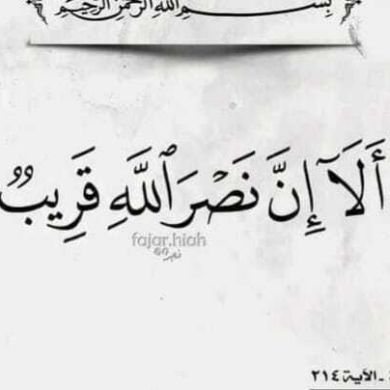 بِسْمِ اللهِ الرَّحْمٰنِ الرَّحِيْمِ
أَلَآ إِنَّ نَصْرَ ٱللَّهِ قَرِيبٌ
fajar.hiah
- الآية ٢١٤